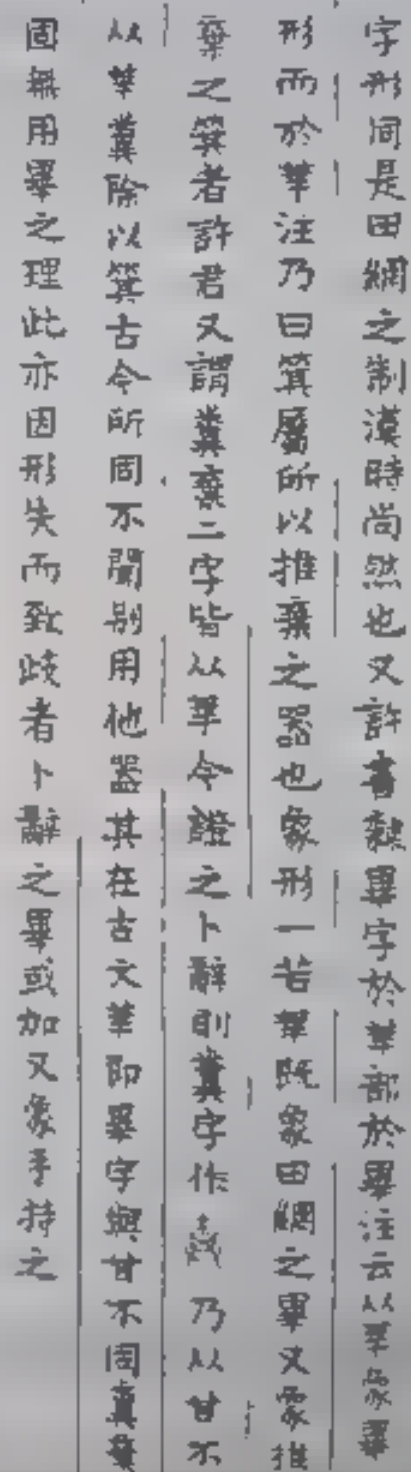 字形同是田網之制漢時尚然也又許書隸畢字於𠦒部於畢注云从𠦒象畢
形而於𠦒注乃曰箕屬所以推棄之器也象形一若𠦒既象田網之畢又象推
棄之箕者許君又謂糞棄二字皆从𠦒今證之卜辭則糞字作 乃从甘不
从𠦒糞除以箕古今所同不聞別用他器其在古文𠦒即畢字與甘不同糞棄
固無用畢之理此亦因形失而致歧者卜辭之畢或加又象手持之